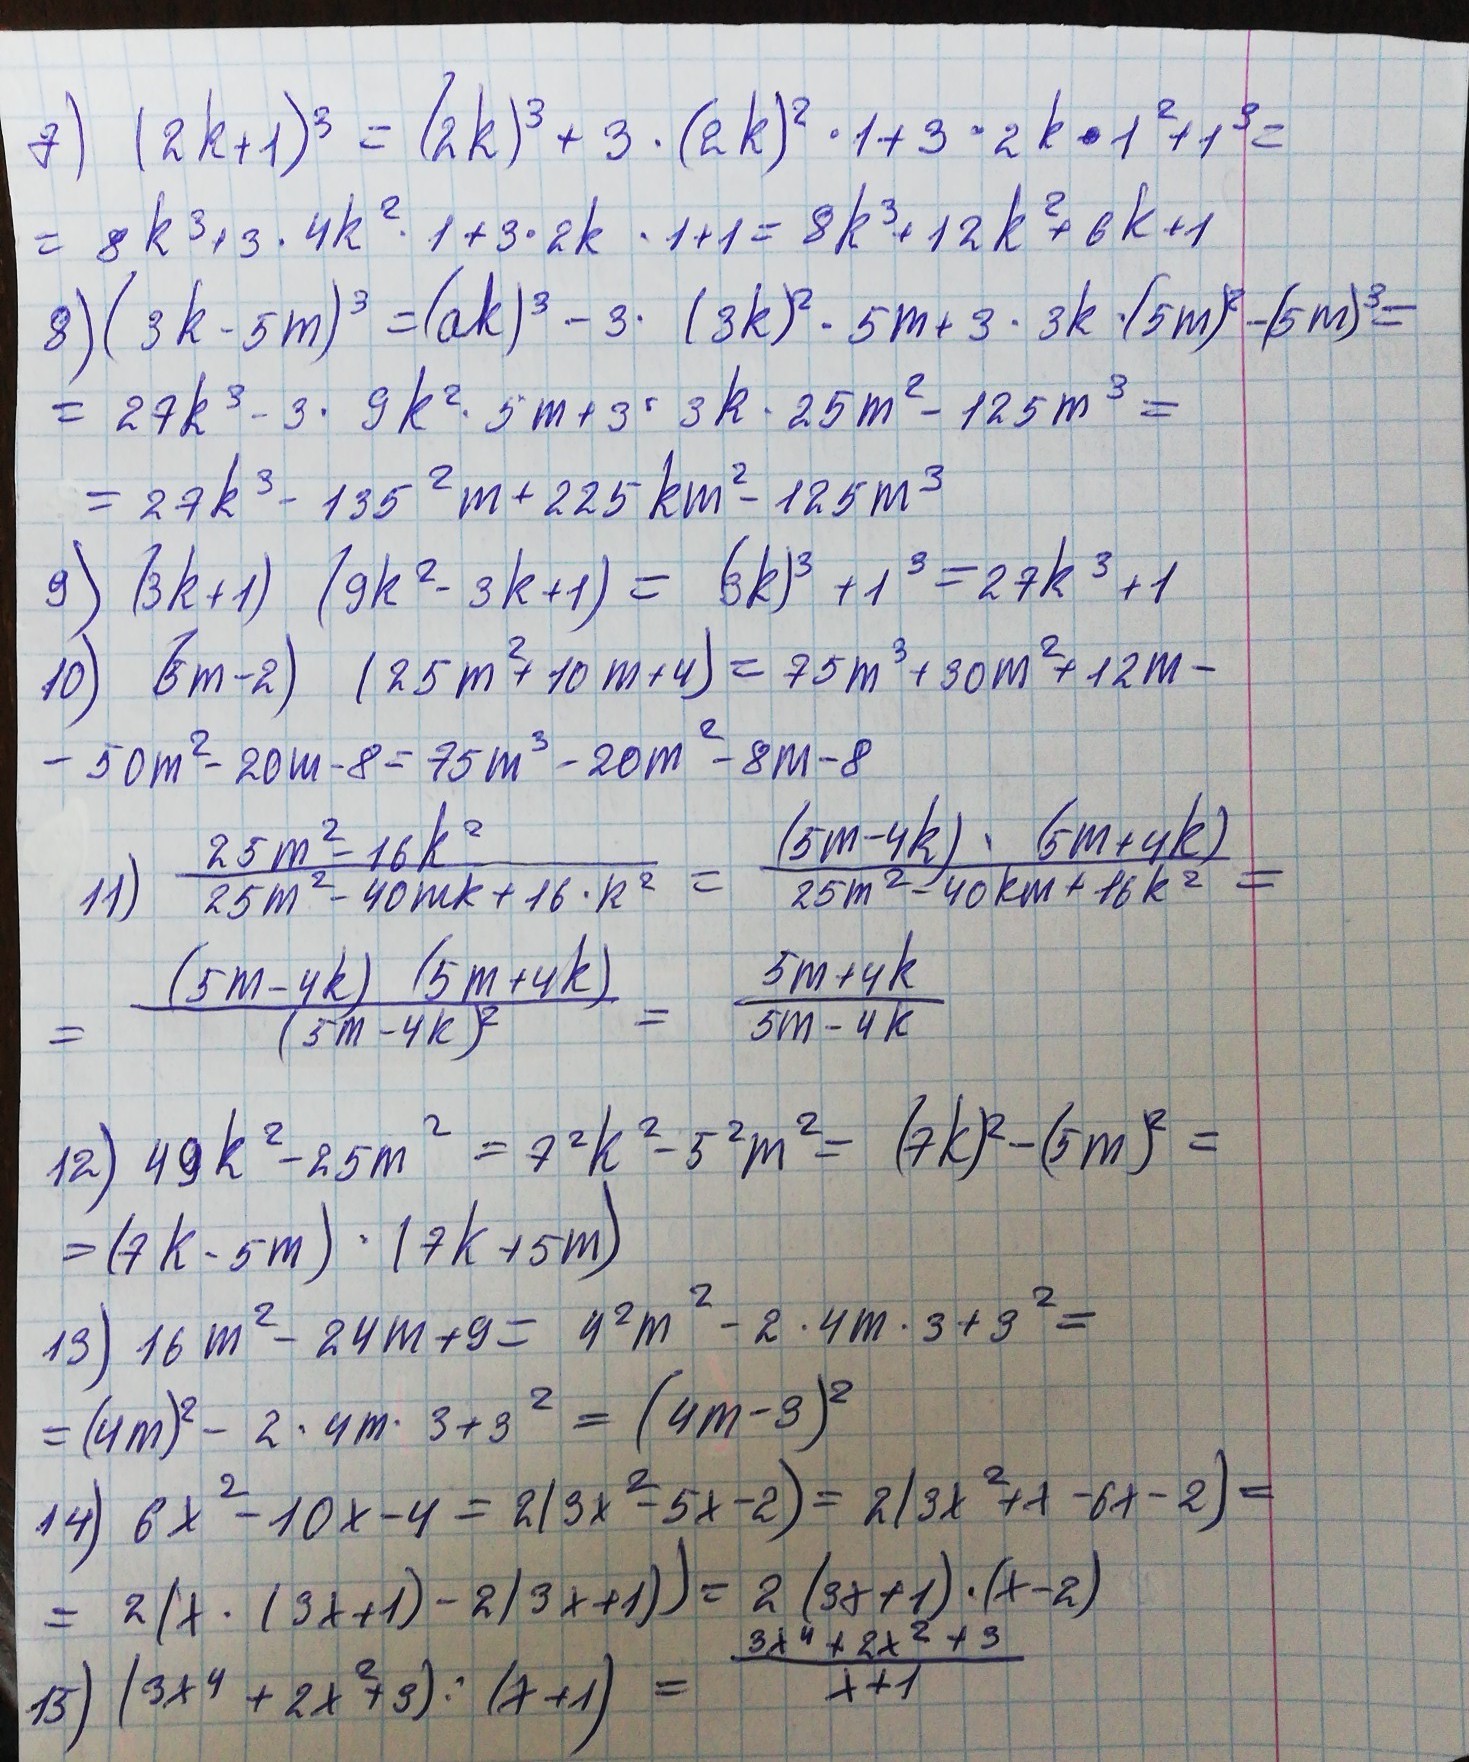 7) (2k+1)³ = (2k)³ + 3 · (2k)² · 1 + 3 · 2k · 1² + 1³ =
= 8k³ + 3 · 4k² · 1 + 3 · 2k · 1 + 1 = 8k³ + 12k² + 6k + 1
8) (3k - 5m)³ = (ak)³ - 3 · (3k)² · 5m + 3 · 3k · (5m)² - (5m)³ =
= 27k³ - 3 · 9k² · 5m + 3 · 3k · 25m² - 125m³ =
= 27k³ - 135²m + 225km² - 125m³
9) (3k+1) (9k² - 3k + 1) = (3k)³ + 1³ = 27k³ + 1
10) (5m-2) (25m² + 10m + 4) = 75m³ + 30m² + 12m -
- 50m² - 20m - 8 = 75m³ - 20m² - 8m - 8
25m² - 16k² (5m-4k) · (5m+4k)
11) = =
25m² - 40mk + 16 · k² 25m² - 40km + 16k²
(5m-4k) (5m+4k) 5m+4k
= =
(5m-4k)² 5m-4k
12) 49k² - 25m² = 7²k² - 5²m² = (7k)² - (5m)² =
= (7k - 5m) · (7k + 5m)
13) 16m² - 24m + 9 = 4²m² - 2 · 4m · 3 + 3² =
= (4m)² - 2 · 4m · 3 + 3² = (4m-3)²
14) 6x² - 10x - 4 = 2(3x² - 5x - 2) = 2(3x² + x - 6x - 2) =
= 2(x · (3x+1) - 2(3x+1)) = 2(3x+1) · (x-2)
3x⁴ + 2x² + 3
15) (3x⁴ + 2x² + 3) : (x+1) =
x+1